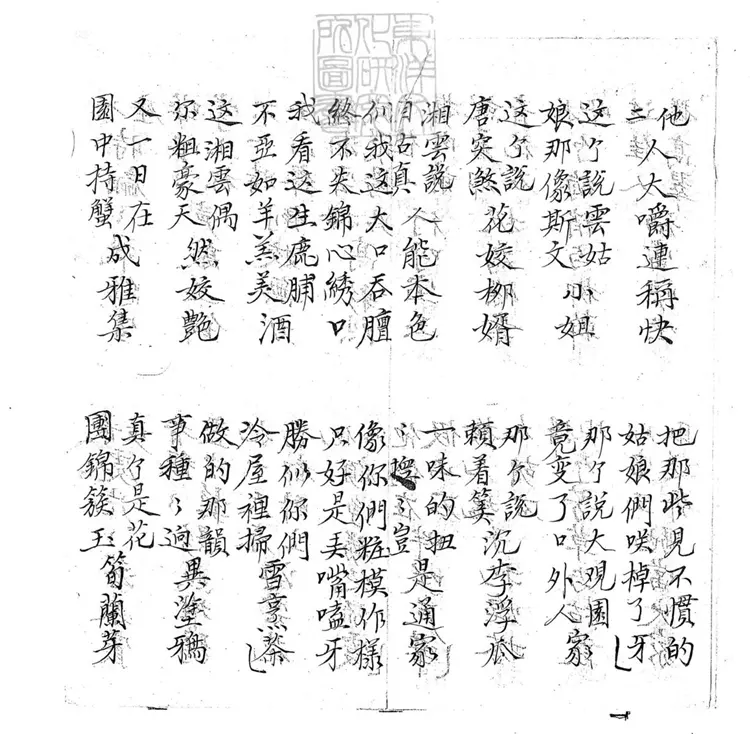 東洋文化研究所圖書
他三人大嚼連稱快
把那些見不慣的姑娘們咲掉了牙
这个說雲姑娘那像斯文小姐
那个說大观園竟变了口外人家
这个說唐突煞花姣柳媠
那个說賴着沉李浮瓜
湘雲說自古真人能本色
一味的扭〻揑〻豈是通家
你我這大口吞膻終不失錦心綉口
像你們粧模作樣只好是弄嘴嗑牙
我看这生鹿脯不亞如羊羔美酒
勝似你們冷屋裡掃雪烹茶
这湘雲偶尔粗豪天然姣艷
做的那韻事種〻迥異塗鴉
又一日在園中持蟹成雅集
真个是花團錦簇玉笋蘭芽